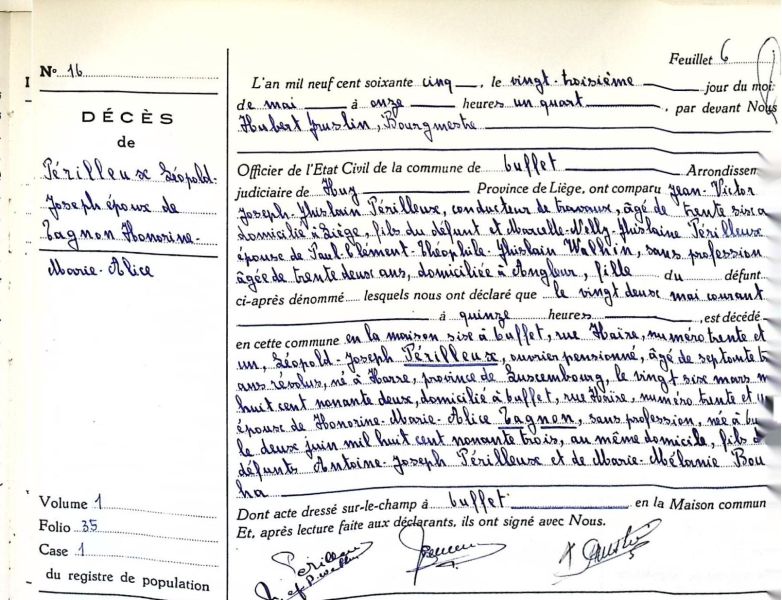 Feuillet 6
N° 16
DÉCÈS
de
Périlleux Léopold-
Joseph époux de
Tagnon Honorine-
Marie-Alice
L'an mil neuf cent soixante cinq, le vingt-troisième jour du moi
de mai à onze heures un quart, par devant Nous
Hubert, Bourgmestre
Officier de l'Etat Civil de la commune de Buffet Arrondissem
judiciaire de Huy Province de Liège, ont comparu Jean-Victor
Joseph-Ghislain Périlleux, conducteur de travaux, âgé de trente six a
domicilié à Liège, fils du défunt et Marcelle-Nelly-Ghislaine Périlleux
épouse de Paul-Clément-Théophile-Ghislain Walhin, sans profession
âgée de trente deux ans, domiciliée à Angleur, fille du défunt
ci-après dénommé lesquels nous ont déclaré que le vingt deux mai courant
à quinze heures, est décédé
en cette commune en la maison sise à Buffet, rue Haire, numéro trente et
un, Léopold-Joseph Périlleux, ouvrier pensionné, âgé de septante t
ans révolus, né à Harre, province de Luxembourg, le vingt six mars m
huit cent nonante deux, domicilié à Buffet, rue Haire, numéro trente et u
épouse de Honorine-Marie-Alice Tagnon, sans profession, née à Bu
le deux juin mil huit cent nonante trois, au même domicile, fils d
défunts Antoine-Joseph Périlleux et de Marie-Mélanie Bou
ha
Dont acte dressé sur-le-champ à Buffet en la Maison commun
Et, après lecture faite aux déclarants, ils ont signé avec Nous.
Volume 1
Folio 35
Case 1
du registre de population
Périlleux